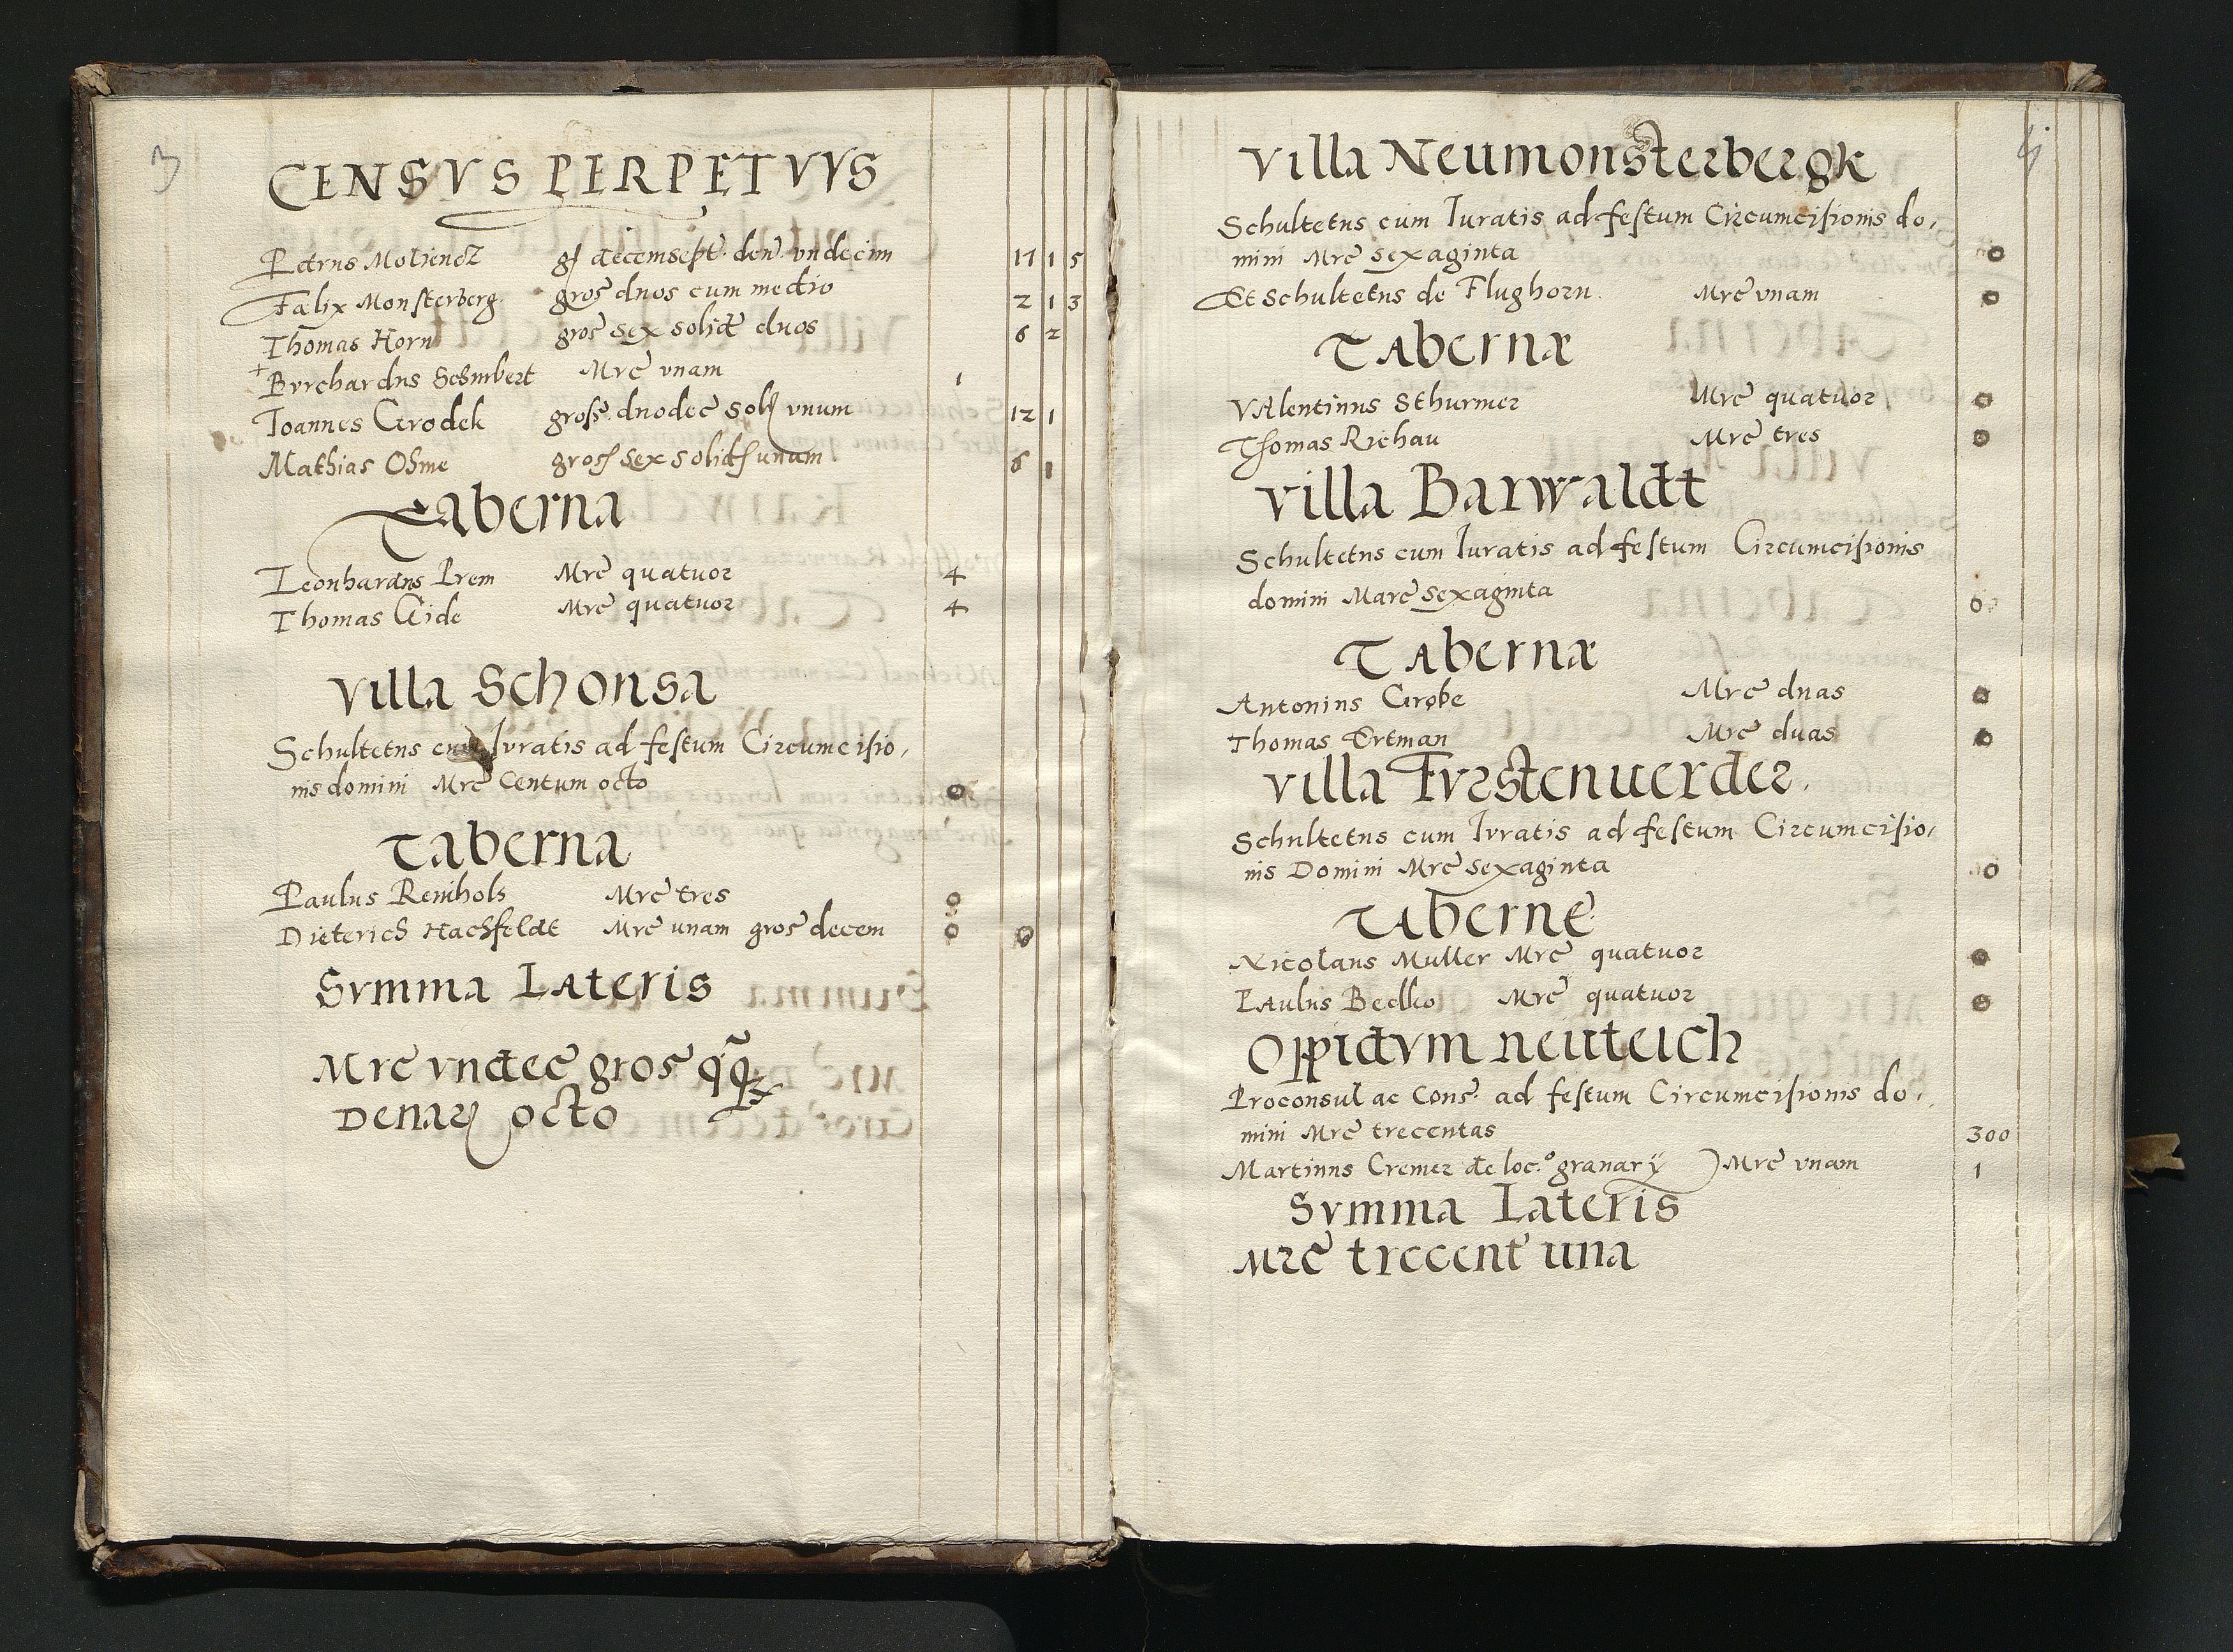 3
CENSVS PERPETVVS
Petrus Motiencz gſ decemsept den vndecim 17 1 5
Fælix Monsterberg gros duos cum medio 2 1 3
Thomas Horn gros sex solid duos 6 2
+ Burchardus Schubert Mrc vnam 1
Joannes Grodek gross duodec sol vnum 12 1
Mathias Ohme gros sex solid unum 6 1
Taberna
Leonhardus Prem Mrc quatuor 4
Thomas Gide Mrc quatuor 4
Villa Schonsa
Schultetus cum Iuratis ad festum Circumcisio,
nis domini Mrc Centum octo 0
Taberna
Paulus Reinhols Mrc tres 0
Dieterich Hachfeldt Mrc unam gros decem 0 0
Svmma Lateris
Mrc vndec gros
Denar octo
Villa Neumonsterbergk
Schultetus cum Iuratis ad festum Circumcisionis do,
mini Mrc sexaginta 0
Et Schultetus de Flughorn Mrc vnam 0
Tabernæ
Valentinus Sthurmer Mrc quatuor 0
Thomas Richau Mrc tres 0
Villa Barwaldt
Schultetus cum Iuratis ad festum Circumcisionis
domini Marc sexaginta 0
Tabernæ
Antonius Grobe Mrc duas 0
Thomas Ertman Mrc duas 0
Villa Furstenuerder.
Schultetus cum Iuratis ad festum Circumcisio,
nis Domini Mrc sexaginta 0
Taberne
Nicolaus Muller Mrc quatuor 0
Paulus Bedko Mrc quatuor 0
Oppidvm Neuteich
Proconsul ac Cons: ad festum Circumcisionis do,
mini Mrc trecentas 300
Martinus Cremer de loc.º granarÿ Mrc vnam 1
Svmma Lateris
Mrc trecent una